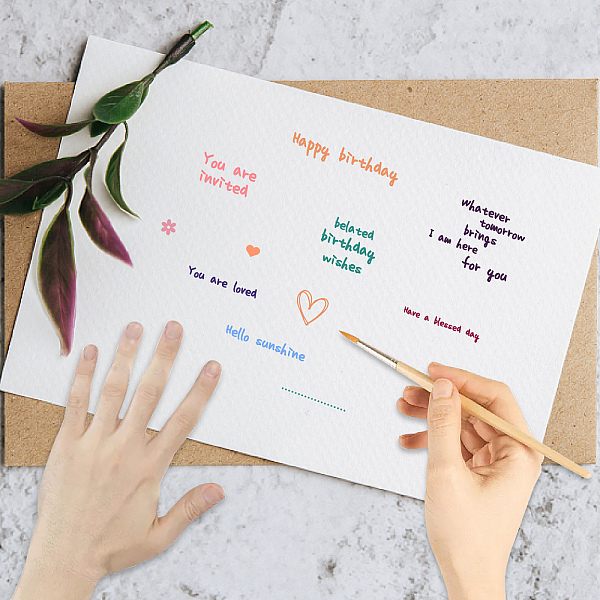 Happy birthday
You are
invited
whatever
tomorrow
brings
I am here
for you
belated
birthday
wishes
You are loved
Have a blessed day
Hello sunshine